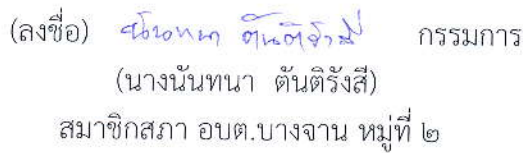 (ลงชื่อ) นันทนา ตันติรังสี กรรมการ
(นางนันทนา ตันติรังสี)
สมาชิกสภา อบต.บางจาน หมู่ที่ ๒